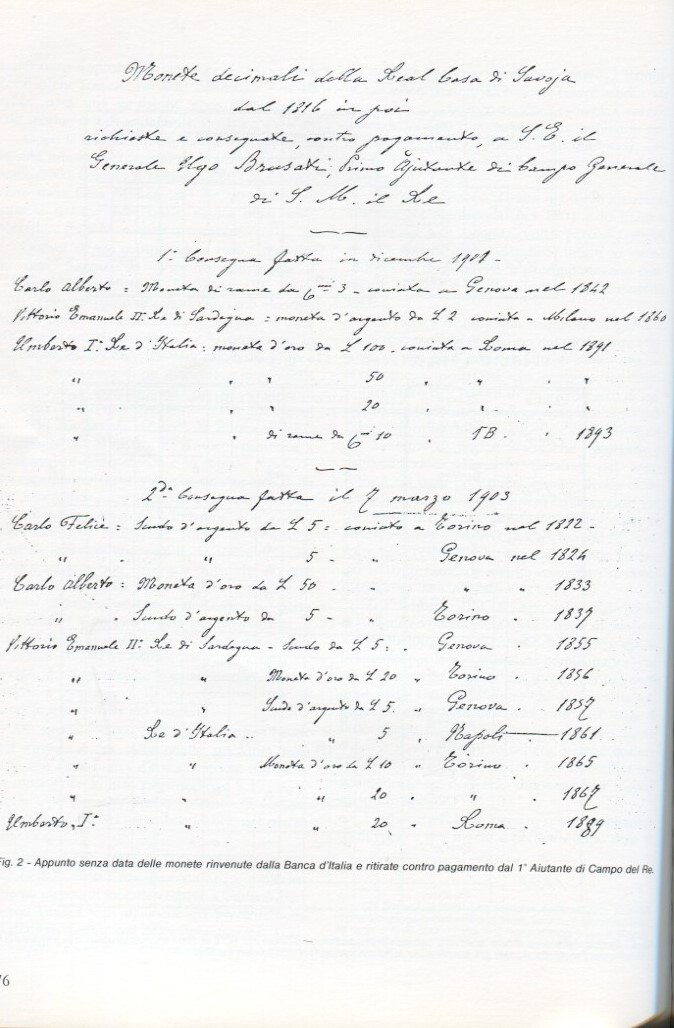 Monete decimali della Real Casa di Savoja
dal 1816 in poi
richieste e consegnate, contro pagamento, a S. E. il
Generale Ugo Brusati, Primo Ajutante di Campo Generale
di S. M. il Re
1ª Consegna fatta in dicembre 1901 -
Carlo Alberto = Moneta di rame da 3 - coniata a Genova nel 1842
Vittorio Emanuele IIº Re di Sardegna = moneta d'argento da £ 2 coniata a Milano nel 1860
Umberto Iº Re d'Italia : monete d'oro da £ 100 - coniata a Roma nel 1891
" " " 50 " " " "
" " " 20 " " " "
" " di rame da 10 " TB. " 1893
2ª Consegna fatta il 7 marzo 1903
Carlo Felice = Scudo d'argento da £ 5 = coniato a Torino nel 1822 -
" " " 5 - " Genova nel 1824
Carlo Alberto = Moneta d'oro da £ 50 - " " " 1833
" " Scudo d'argento da 5 - " Torino " 1837
Vittorio Emanuele IIº Re di Sardegna - Scudo da £ 5 = " Genova " 1855
" " Moneta d'oro da £ 20 " Torino " 1856
" " Scudo d'argento da £ 5 " Genova " 1857
" Re d'Italia " " 5 " Napoli — 1861
" " Moneta d'oro da £ 10 " Torino " 1865
" " " 20 " " " 1867
Umberto Iº " " 20 " Roma " 1889
Fig. 2 - Appunto senza data delle monete rinvenute dalla Banca d'Italia e ritirate contro pagamento dal 1° Aiutante di Campo del Re.
76